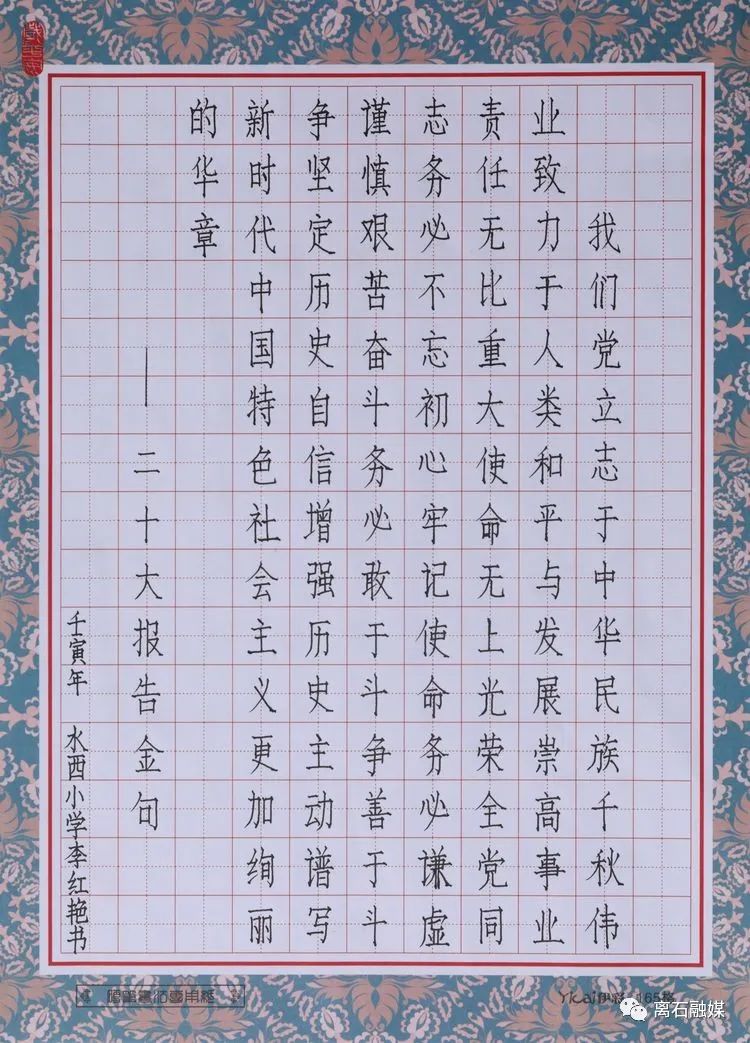 我们党立志于中华民族千秋伟
业致力于人类和平与发展崇高事业
责任无比重大使命无上光荣全党同
志务必不忘初心牢记使命务必谦虚
谨慎艰苦奋斗务必敢于斗争善于斗
争坚定历史自信增强历史主动谱写
新时代中国特色社会主义更加绚丽
的华章
——二十大报告金句
壬寅年 水西小学李红艳书
离石融媒